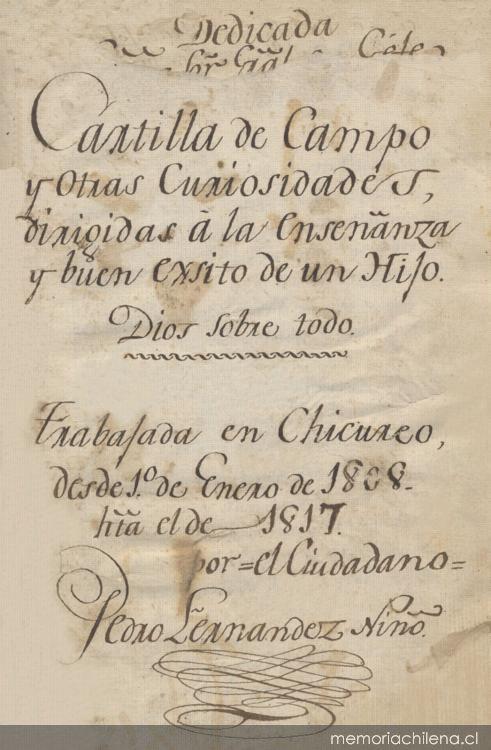 Dedicada
Cartilla de Campo
y Otras Curiosidades,
dirigidas à la Enseñanza
y buen Exsito de un Hijo.
Dios sobre todo.
Trabajada en Chicureo,
desde 1.º de Enero de 1808.
hta el de 1817.
por=el Ciudadano=
Pedro Fernandez Niño.
memoriachilena.cl